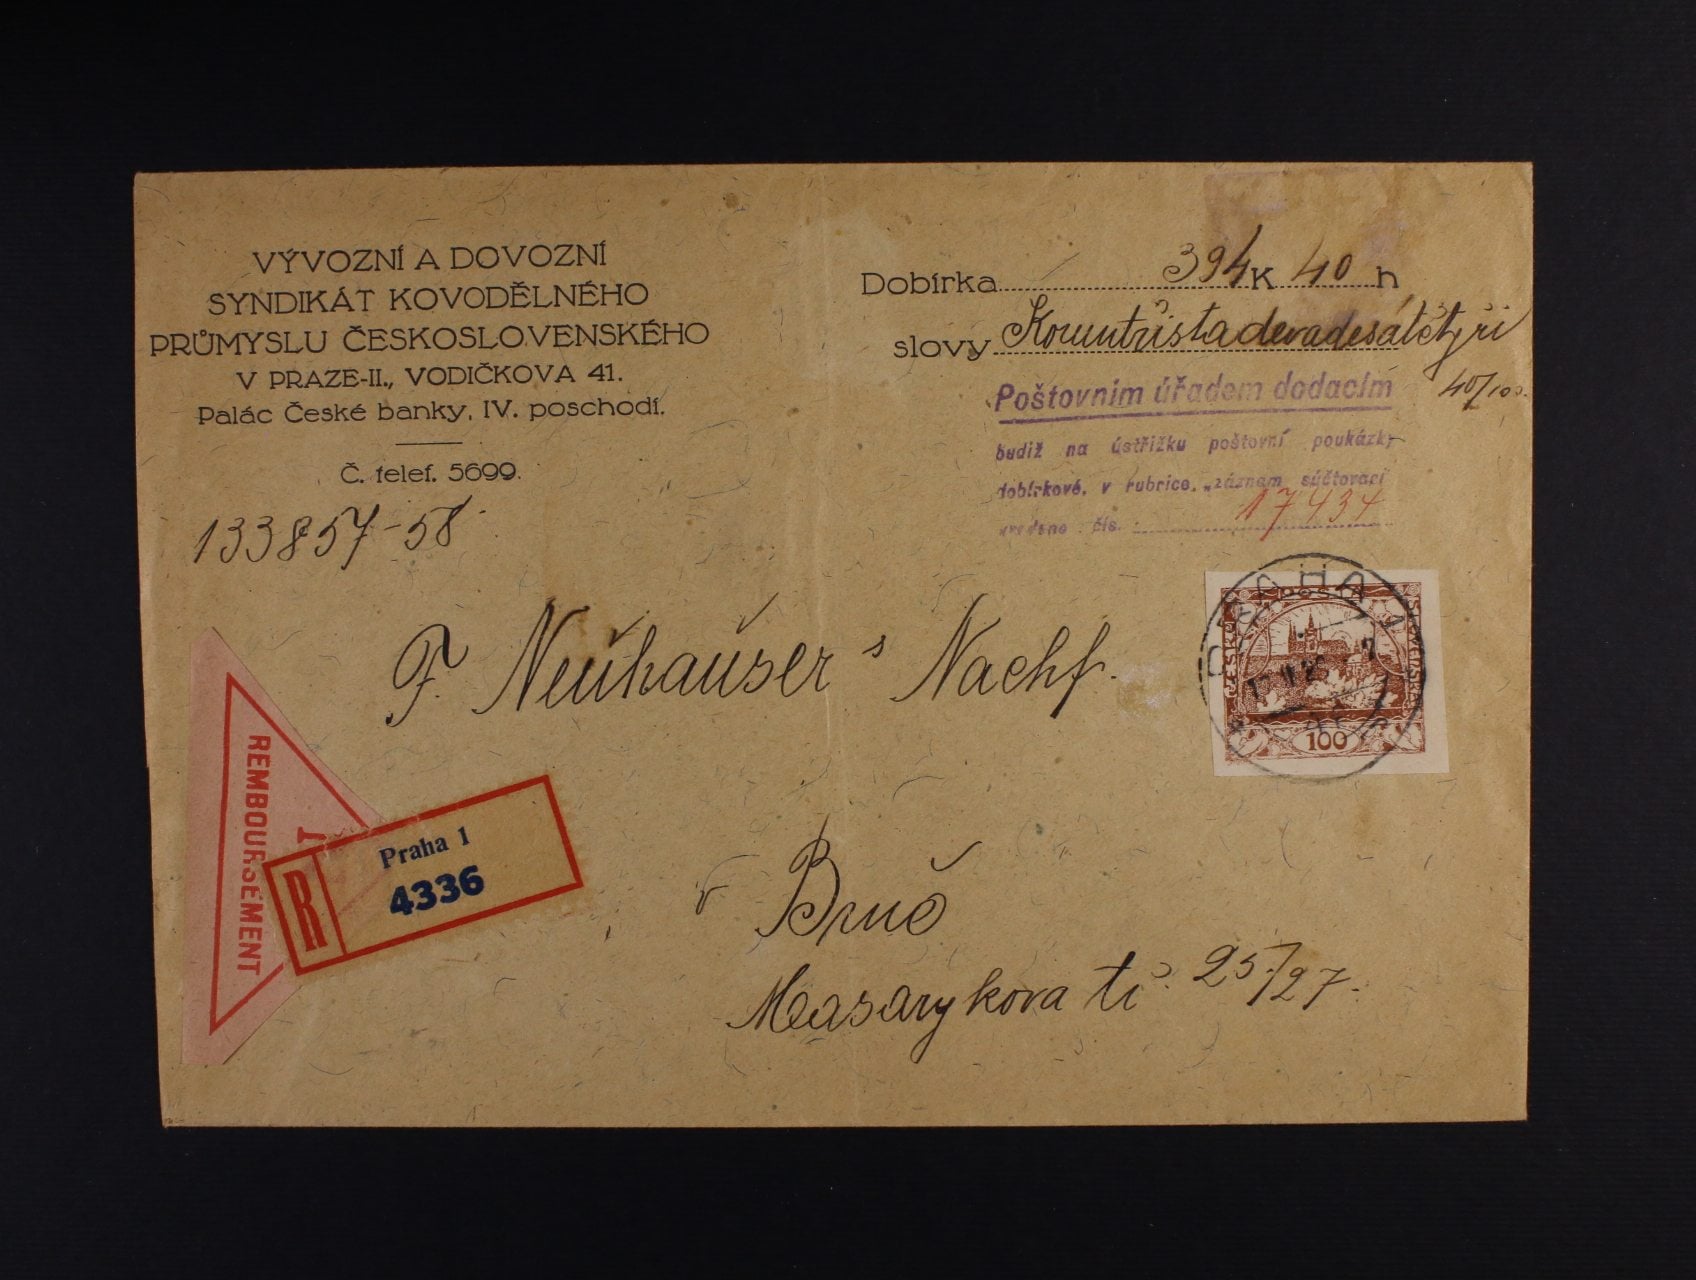 VÝVOZNÍ A DOVOZNÍ
SYNDIKÁT KOVODĚLNÉHO
PRŮMYSLU ČESKOSLOVENSKÉHO
V PRAZE-II., VODIČKOVA 41.
Palác České banky, IV. poschodí.
Č. telef. 5699.
133857-58
Dobírka 394 K 40 h
slovy Koruntřistadevadesátčtyři
40/100
Poštovním úřadem dodacím
budiž na ústřižku poštovní poukázky
dobírkové, v rubrice „záznam súčtovací
uvedeno čís. 17434
POŠTA
ČESKO
100
PRAHA 1
F. Neuhauser s Nachf.
v Brně
Masarykova tř. 25/27.
REMBOURSEMENT
R
Praha 1
4336